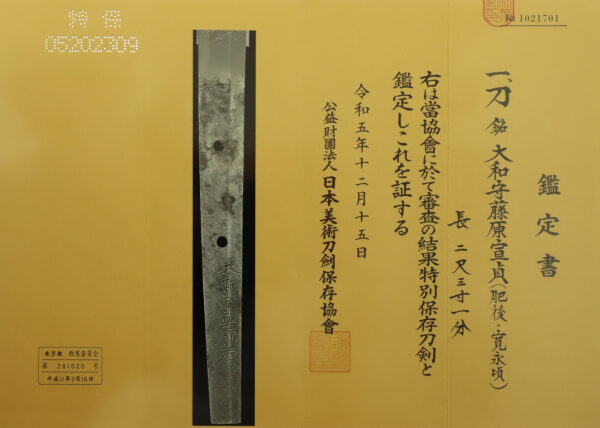 № 1021701
鑑定書
一、刀 銘 大和守藤原宣貞(肥後・寛永頃)
長 二尺三寸一分
右は當協會に於て審査の結果特別保存刀剣と
鑑定しこれを証する
令和五年十二月十五日
公益財團法人 日本美術刀劍保存協會
特保
05202309
東京都 教育委員会
第 281020 号
平成11年3月16日